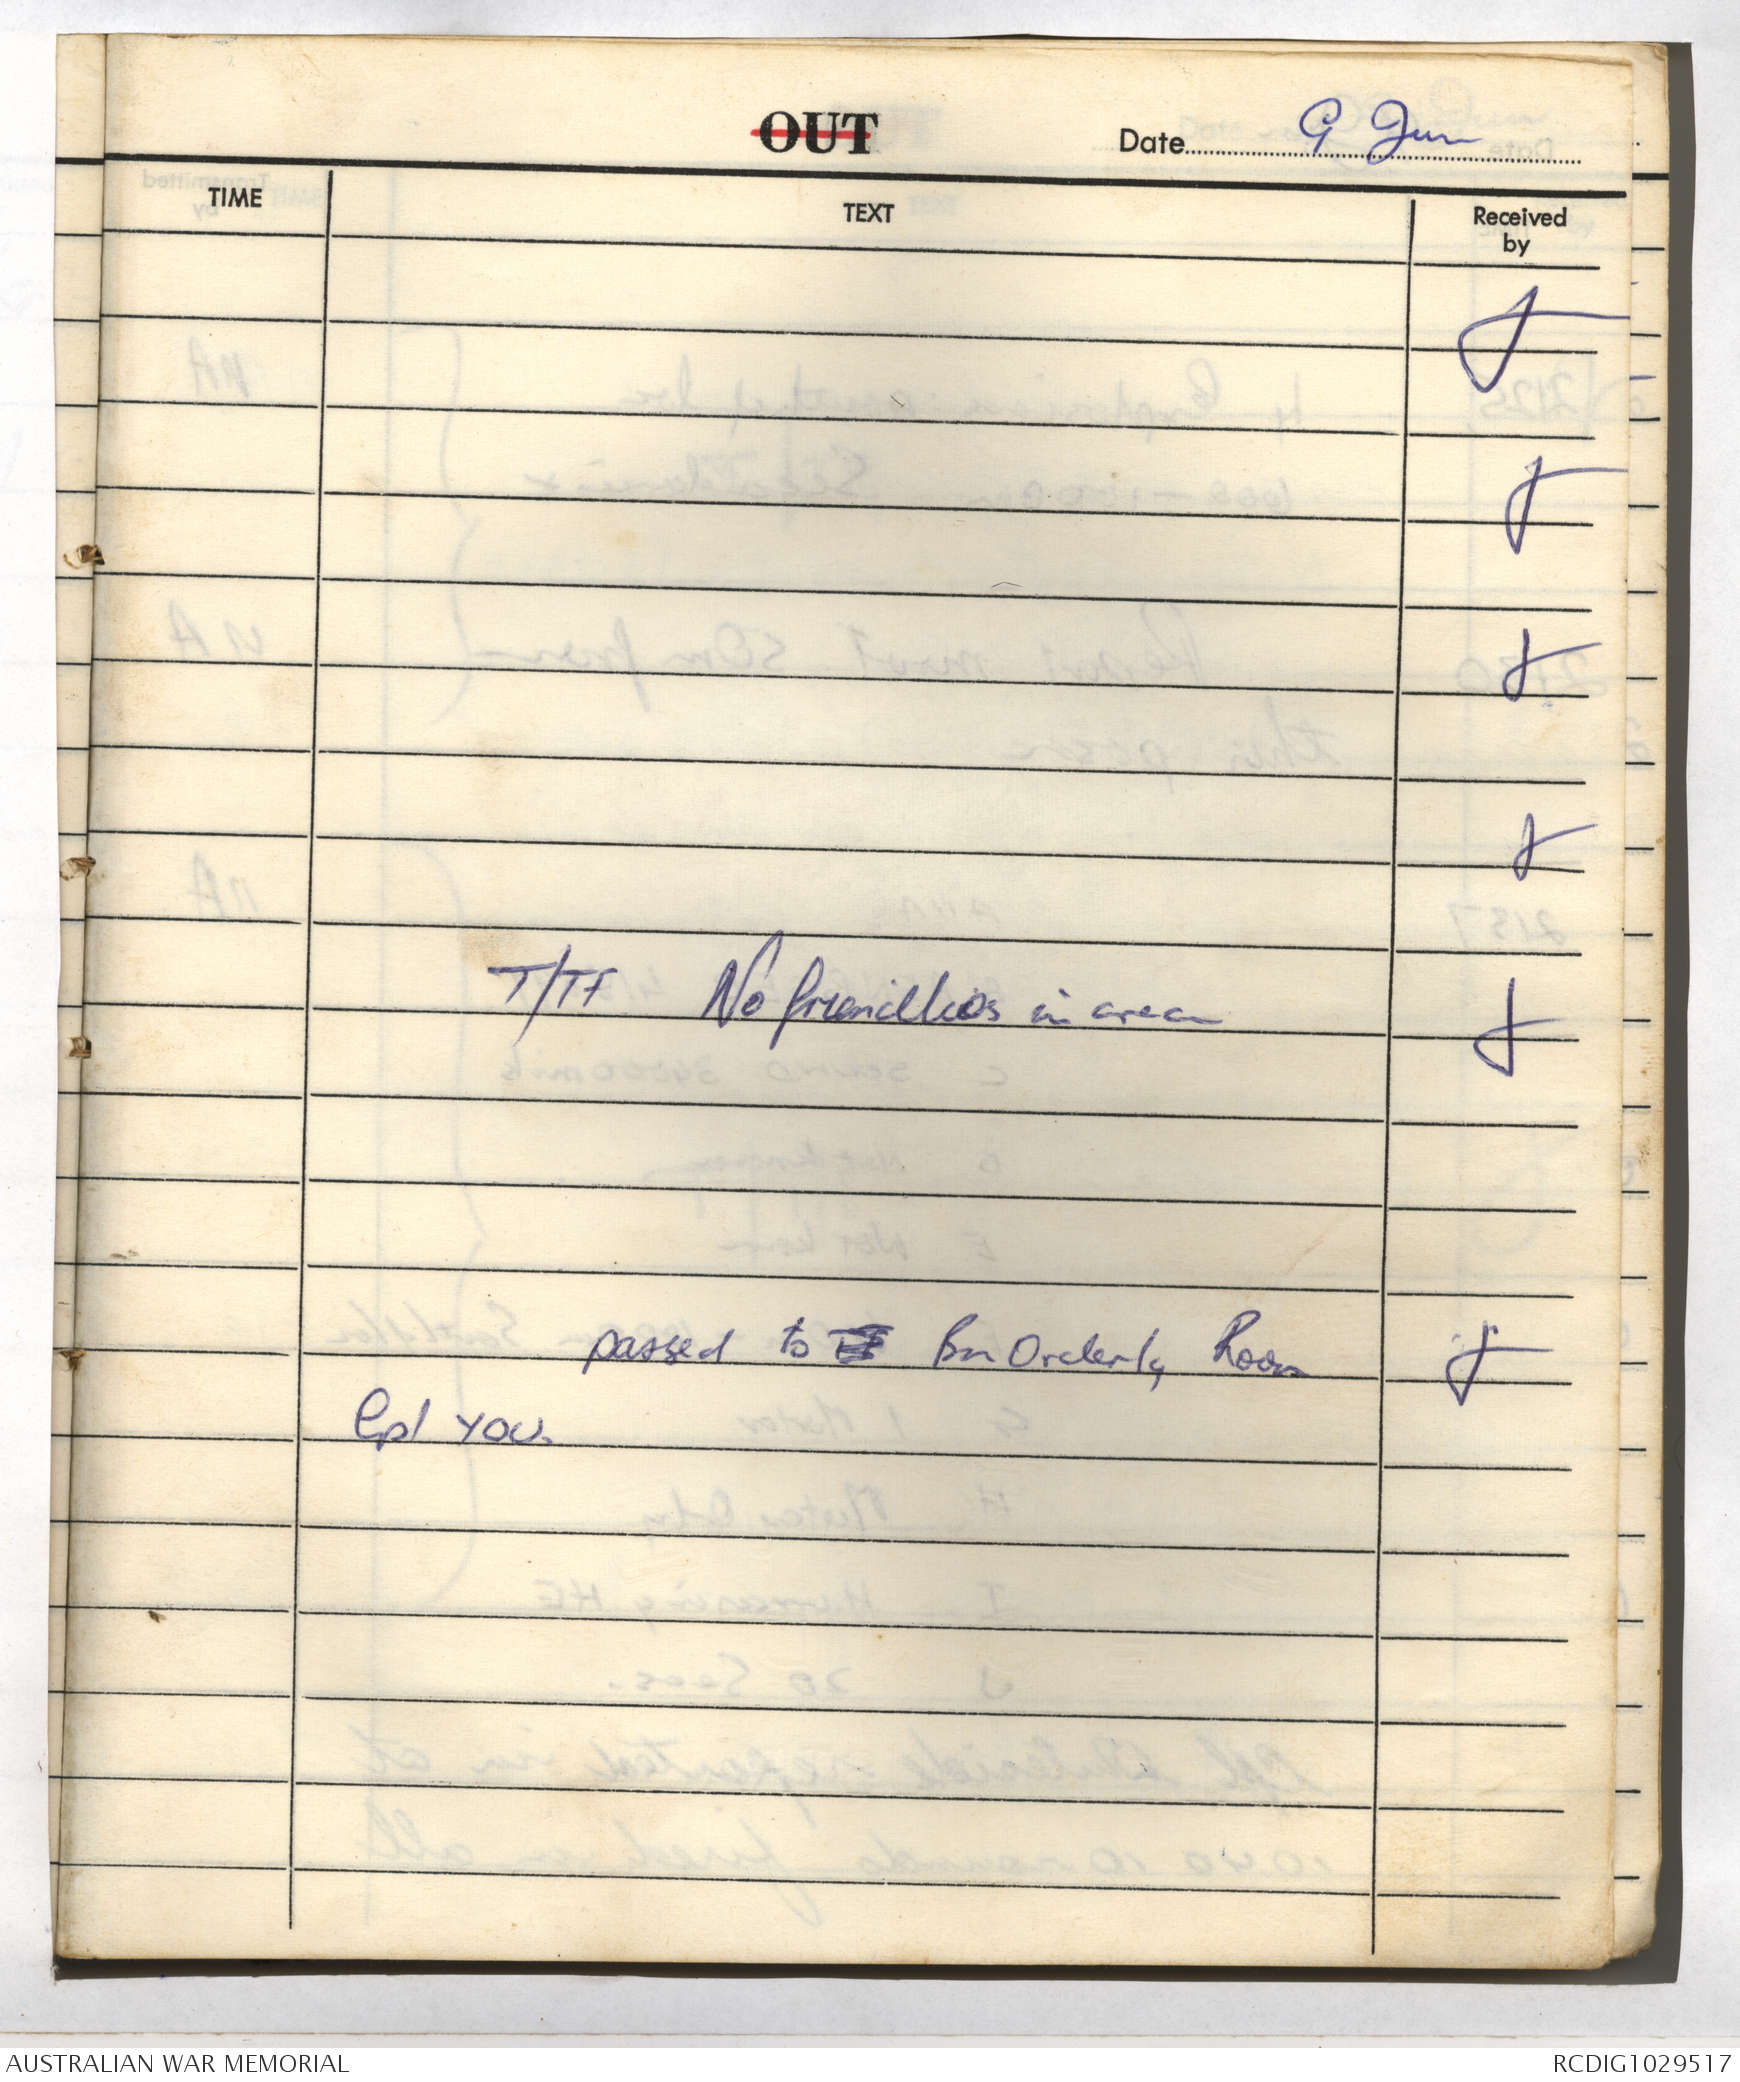 OUT
Date 9 Jun
TIME
TEXT
Received
by
T/TF No friendlies in area
passed to Bn Orderly Room
Cpl YOU.
AUSTRALIAN WAR MEMORIAL
RCDIG1029517